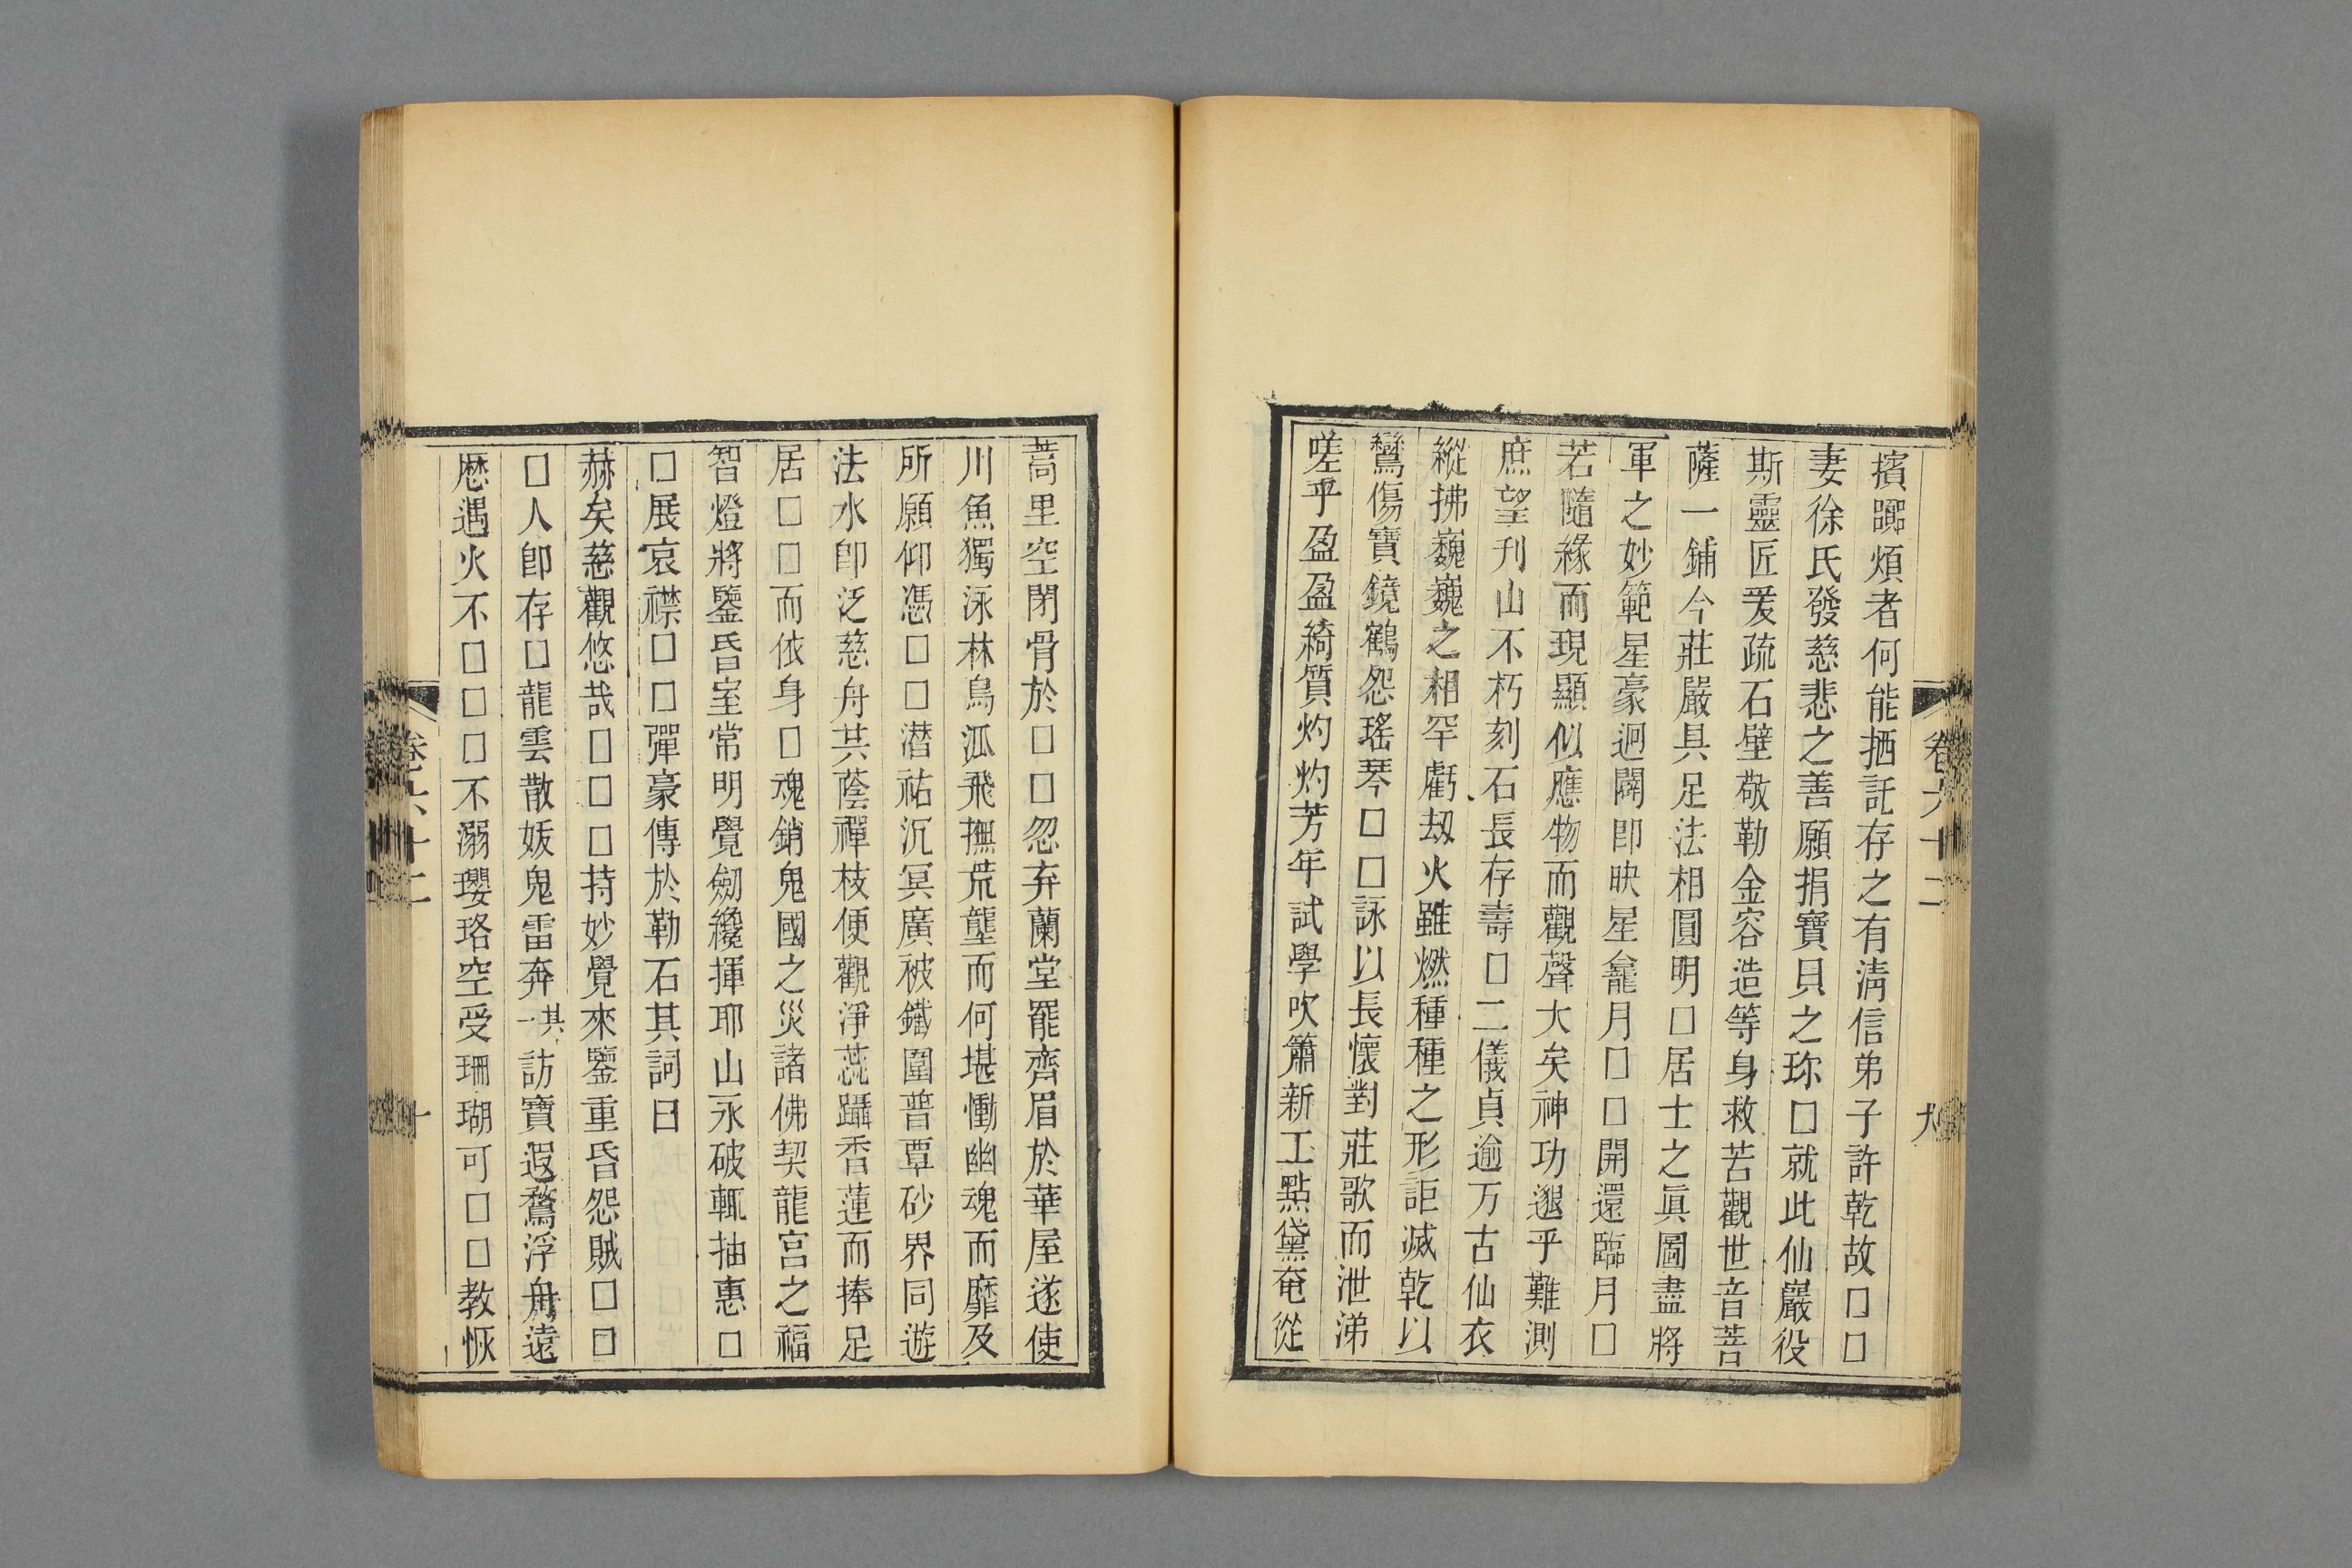 卷六十二
九
擯躑煩者何能拪託存之有淸信弟子許乾故□□
妻徐氏發慈悲之善願捐寶貝之珎□就此仙巖役
斯靈匠爰疏石壁敬勒金容造等身救苦觀世音菩
薩一鋪今莊嚴具足法相圓明□居士之眞圖盡將
軍之妙範星豪迥闢卽映星龕月□□開還臨月□
若隨緣而現顯似應物而觀聲大矣神功邈乎難測
庶望刋山不朽刻石長存壽□二儀貞逾万古仙衣
縱拂巍巍之相罕虧刧火雖燃種種之形詎滅乾以
鸞傷寶鏡鶴怨瑤琴□□詠以長懷對莊歌而泄涕
嗟乎盈盈綺質灼灼芳年試學吹簫新工點黛奄從
蒿里空閉骨於□□忽弃蘭堂罷齊眉於華屋遂使
川魚獨泳林鳥泒飛撫荒壟而何堪慟幽魂而靡及
所願仰憑□□潜祐沉冥廣被鐵圍普覃砂界同遊
法水卽泛慈舟共蔭禪枝便觀淨蕊躡香蓮而捧足
居□□而依身□魂銷鬼國之災諸佛契龍宮之福
智燈將鑒昏室常明覺劒纔揮耶山永破輒抽惠□
□展哀襟□□彈豪傳於勒石其詞曰
赫矣慈觀悠哉□□□持妙覺來鑒重昏怨賊□□
□人卽存□龍雲散妭鬼雷奔其一訪寶遐騖浮舟遠
厯遇火不□□□不溺瓔珞空受珊瑚可□□教恢
卷六十二
十